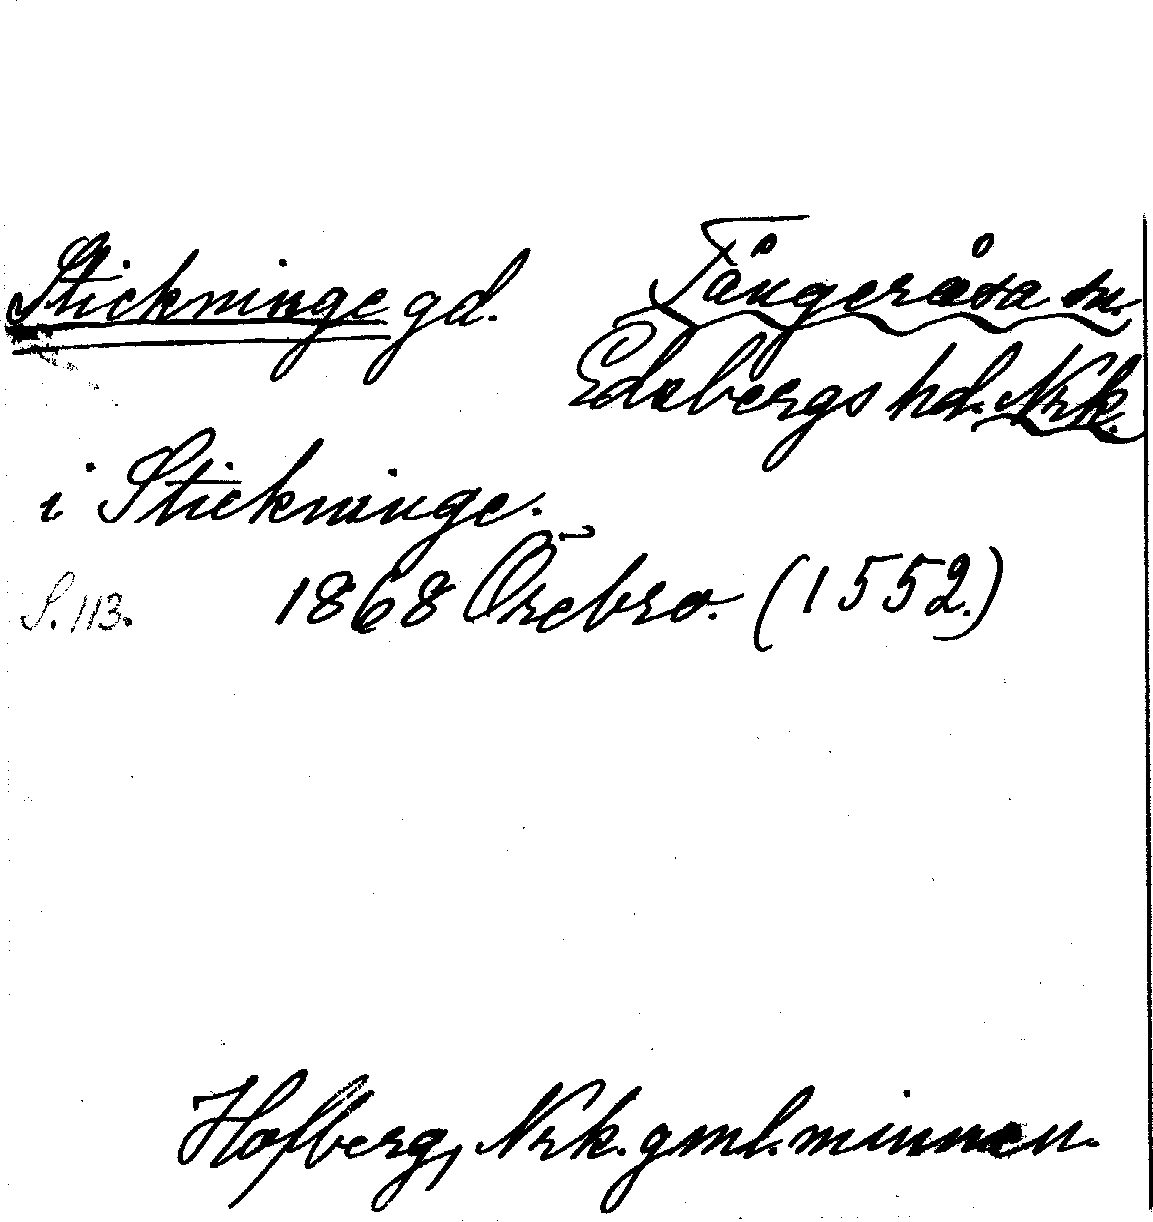 Stickninge gd. Tångeråsa sn.
Edsbergs hd. Nrk.
i Stickninge.
S. 113. 1868 Örebro. (1552.)
Hofberg, Nrk. gml. minnen.